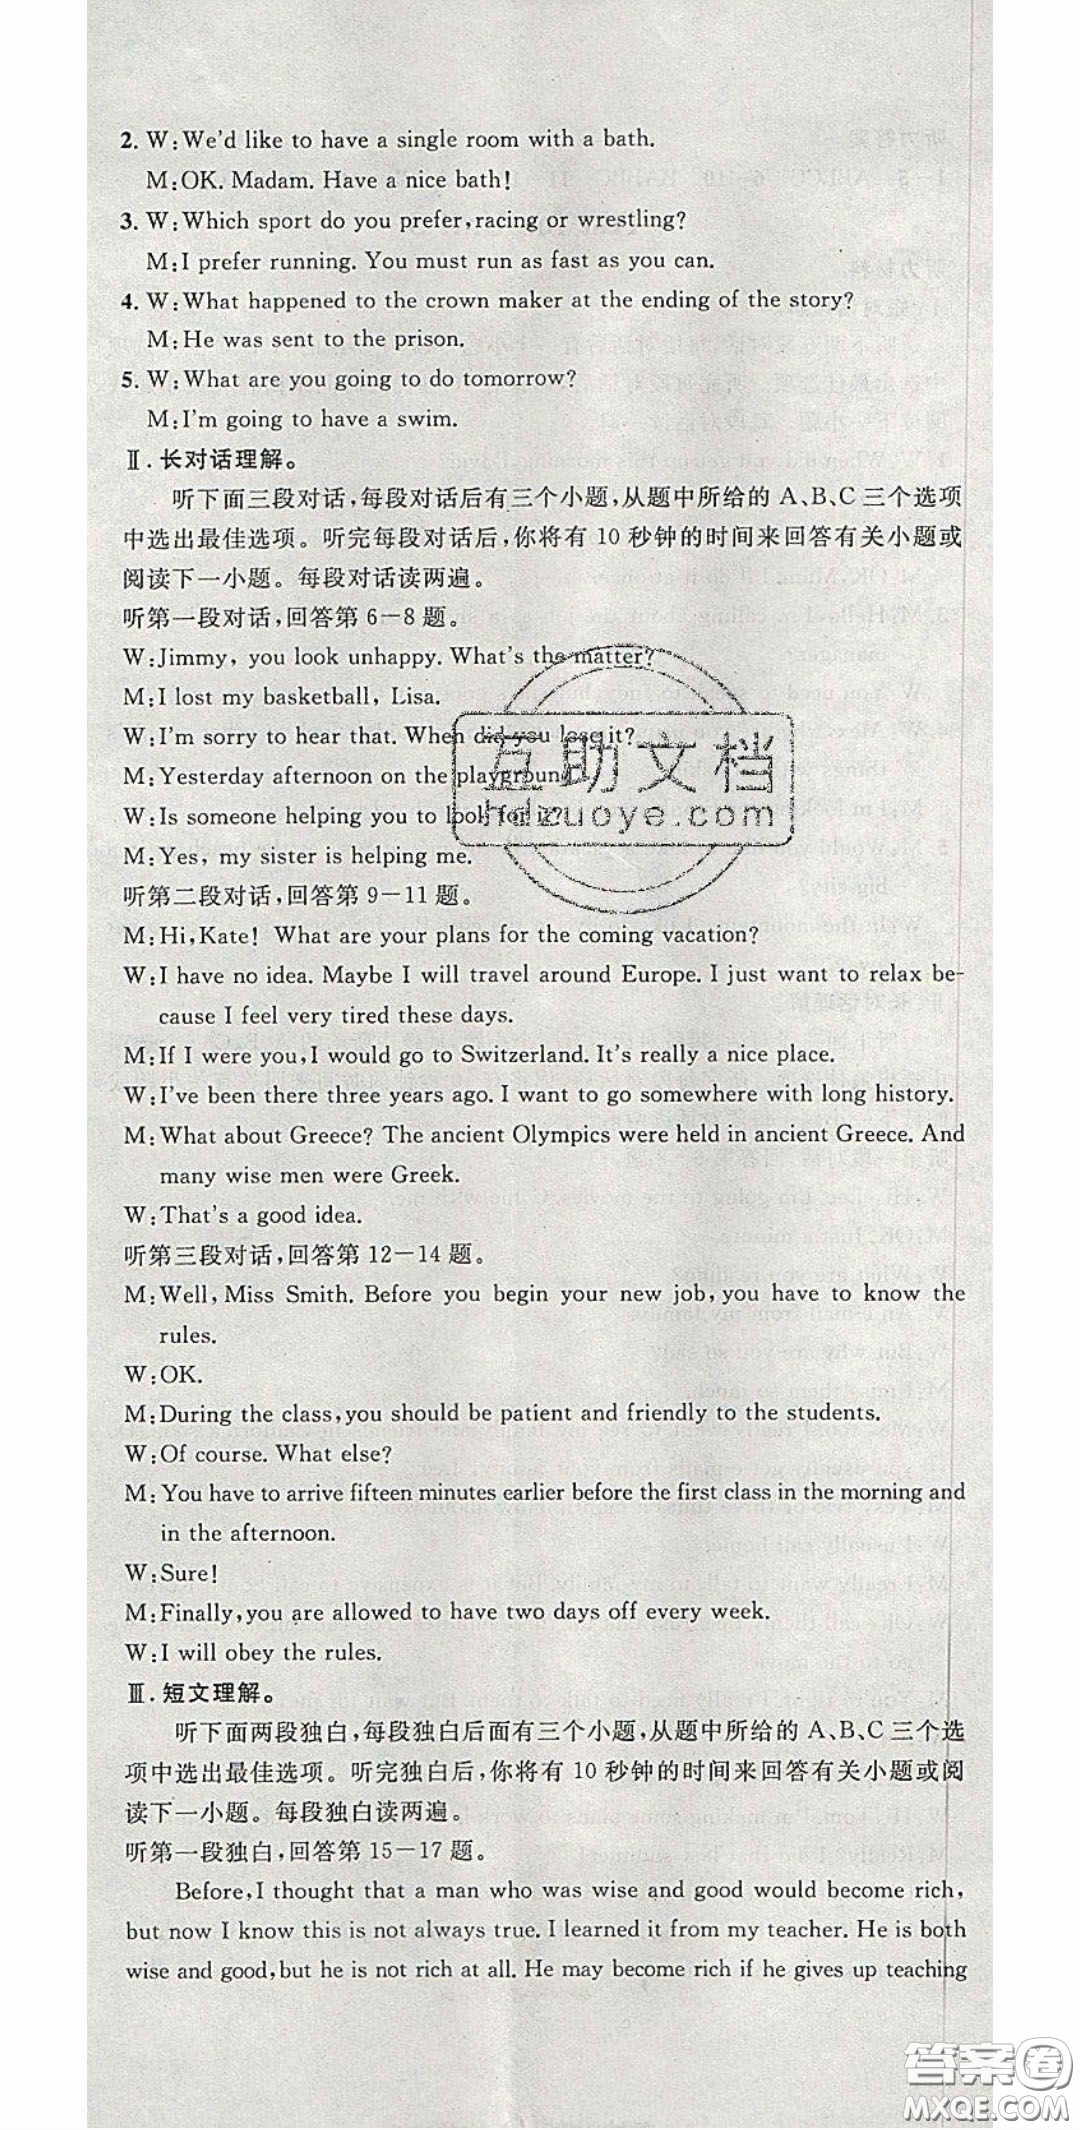 2. W:We'd like to have a single room with a bath.
M:OK. Madam. Have a nice bath!
3. W:Which sport do you prefer,racing or wrestling?
M:I prefer running. You must run as fast as you can.
4. W:What happened to the crown maker at the ending of the story?
M:He was sent to the prison.
5. W:What are you going to do tomorrow?
M:I'm going to have a swim.
Ⅱ.长对话理解。
听下面三段对话,每段对话后有三个小题,从题中所给的 A、B、C 三个选项
中选出最佳选项。听完每段对话后,你将有 10 秒钟的时间来回答有关小题或
阅读下一小题。每段对话读两遍。
听第一段对话,回答第 6-8 题。
W:Jimmy, you look unhappy. What's the matter?
M:I lost my basketball, Lisa.
W:I'm sorry to hear that. When did you lose it?
M:Yesterday afternoon on the playground.
W:Is someone helping you to look for it?
M:Yes, my sister is helping me.
听第二段对话,回答第 9-11 题。
M:Hi,Kate! What are your plans for the coming vacation?
W:I have no idea. Maybe I will travel around Europe. I just want to relax be-
cause I feel very tired these days.
M:If I were you,I would go to Switzerland. It's really a nice place.
W:I've been there three years ago. I want to go somewhere with long history.
M:What about Greece? The ancient Olympics were held in ancient Greece. And
many wise men were Greek.
W:That's a good idea.
听第三段对话,回答第 12-14 题。
M:Well,Miss Smith. Before you begin your new job,you have to know the
rules.
W:OK.
M:During the class,you should be patient and friendly to the students.
W:Of course. What else?
M:You have to arrive fifteen minutes earlier before the first class in the morning and
in the afternoon.
W:Sure!
M:Finally,you are allowed to have two days off every week.
W:I will obey the rules.
Ⅲ.短文理解。
听下面两段独白,每段独白后面有三个小题,从题中所给的 A、B、C 三个选
项中选出最佳选项。听完独白后,你将有 10 秒钟的时间来回答有关小题或阅
读下一小题。每段独白读两遍。
听第一段独白,回答第 15-17 题。
Before,I thought that a man who was wise and good would become rich,
but now I know this is not always true. I learned it from my teacher. He is both
wise and good,but he is not rich at all. He may become rich if he gives up teaching
互助文档
hdzuoye.com
答案圈
MXQE.COM